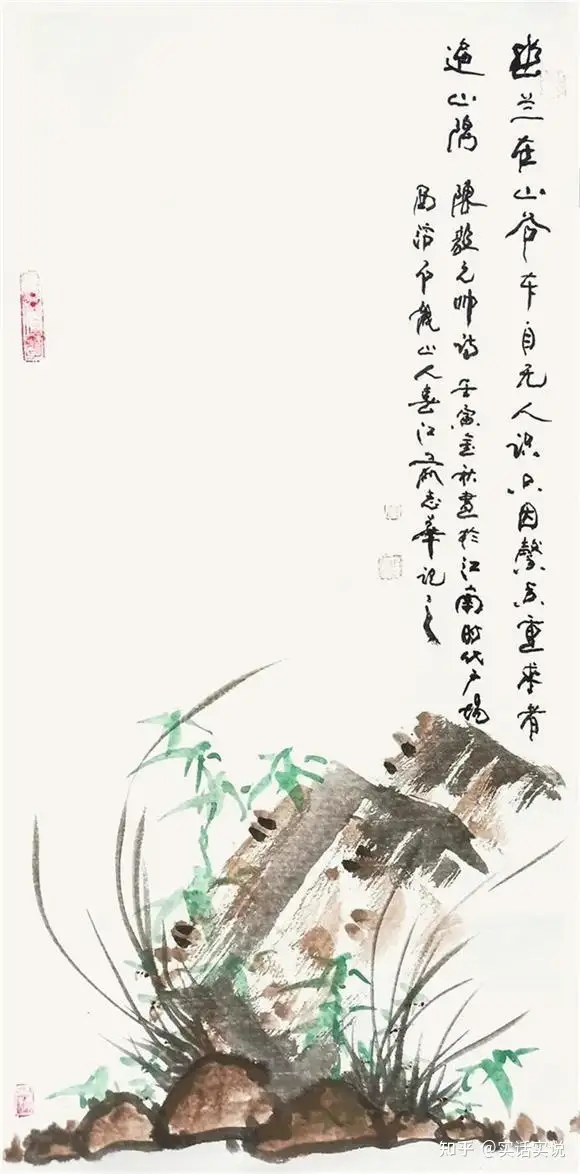 幽兰在山谷本自无人识只因馨香重求者
遍山隅 陳毅元帅诗 壬寅金秋畫於江南时代广場
山人春江志華记之
知乎 @实话实说